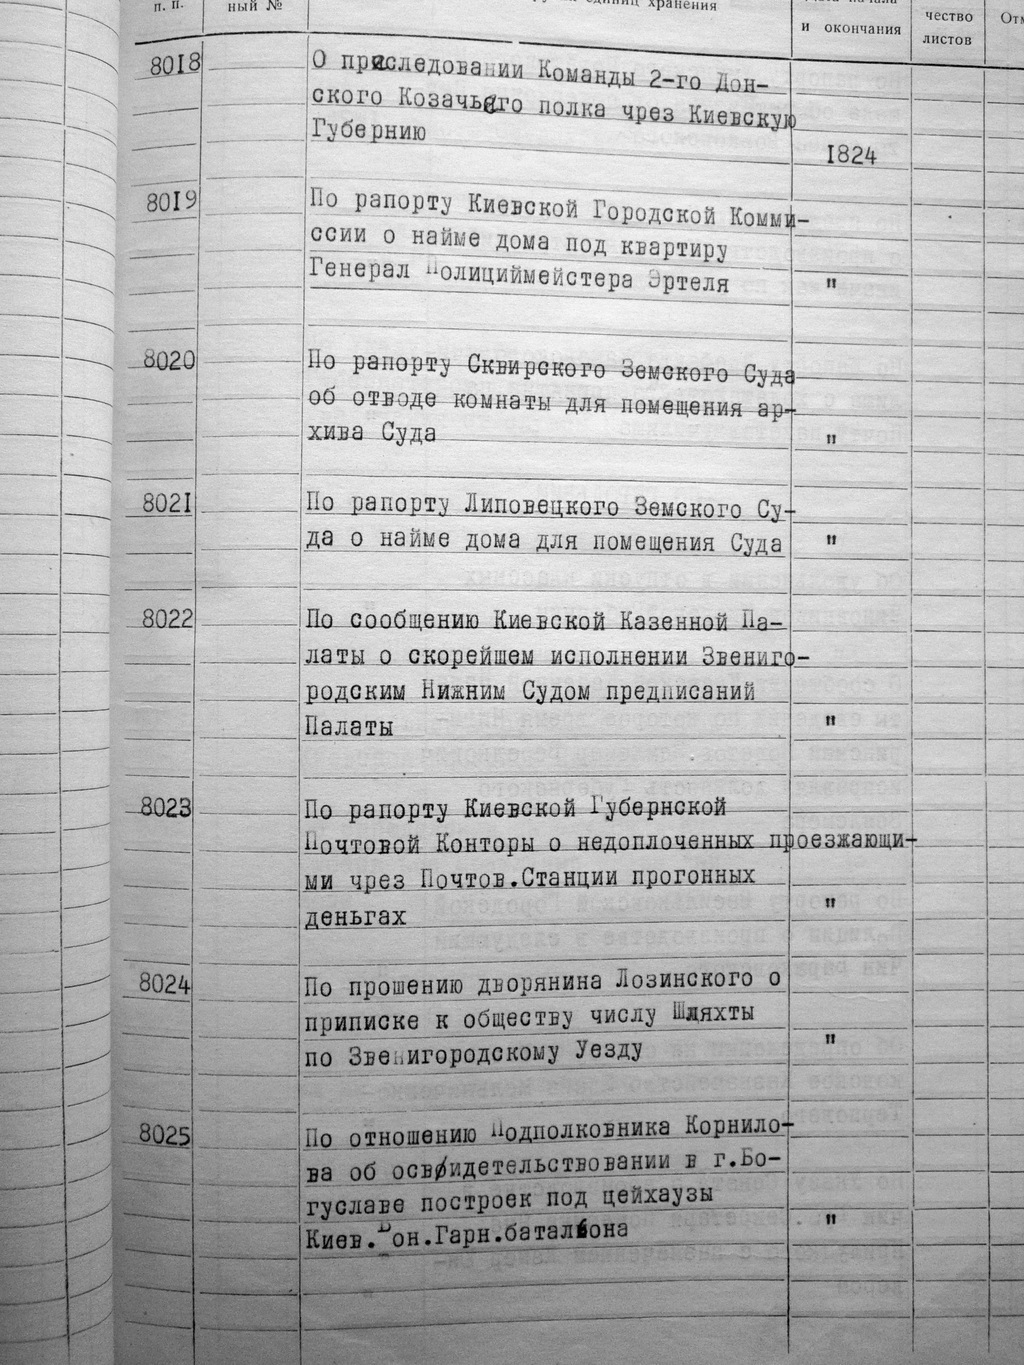 п. п.
ный №
единиц хранения
и окончания
чество
листов
8018
О приследовании Команды 2-го Дон-
ского Козачьего полка чрез Киевскую
Губернию
1824
8019
По рапорту Киевской Городской Комми-
ссии о найме дома под квартиру
Генерал Полициймейстера Эртеля
"
8020
По рапорту Сквирского Земского Суда
об отводе комнаты для помещения ар-
хива Суда
"
8021
По рапорту Липовецкого Земского Су-
да о найме дома для помещения Суда
"
8022
По сообщению Киевской Казенной Па-
латы о скорейшем исполнении Звениго-
родским Нижним Судом предписаний
Палаты
"
8023
По рапорту Киевской Губернской
Почтовой Конторы о недоплоченных проезжающи-
ми чрез Почтов.Станции прогонных
деньгах
"
8024
По прошению дворянина Лозинского о
приписке к обществу числу Шляхты
по Звенигородскому Уезду
"
8025
По отношению Подполковника Корнило-
ва об освидетельствовании в г.Бо-
гуславе построек под цейхаузы
Киев. Вон.Гарн.баталиона
"